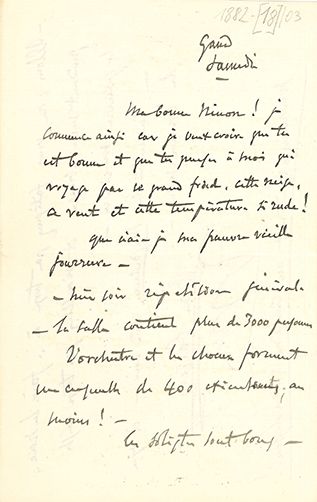 1882-[18]/03
Gand
Samedi
Ma bonne Ninon ! je
commence ainsi car je veux croire que tu
est bonne et que tu penses à moi qui
voyage par ce grand froid, cette neige,
ce vent et cette température si rude !
que n'ai-je ma pauvre vieille
fourrure –
– hier soir répétition générale
– la salle contient plus de 3000 personnes
L'orchestre et les chœurs forment
un ensemble de 400 exécutants, au
moins ! –
les solistes sont bons –